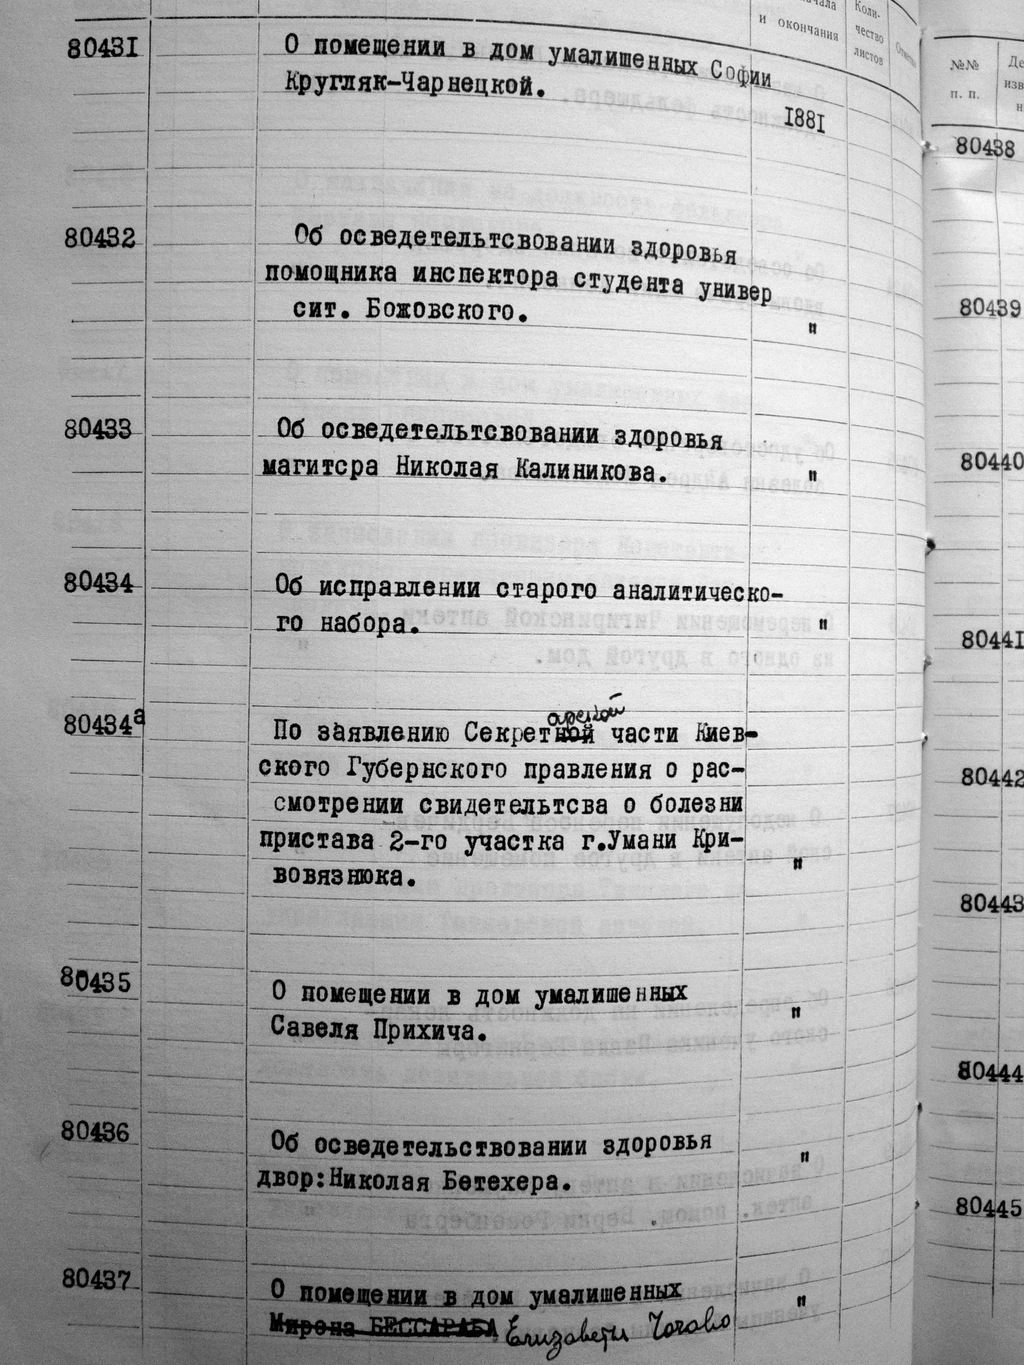 и окончания
Коли-
чество
листов
80431
О помещении в дом умалишенных Софии
Кругляк-Чарнецкой.
1881
80432
Об осведетельтсвовании здоровья
помощника инспектора студента универ
сит. Божовского.
"
80433
Об осведетельтсвовании здоровья
магитсра Николая Калиникова.
"
80434
Об исправлении старого аналитическо-
го набора.
"
80434а
По заявлению Секретной части Киев-
ского Губернского правления о рас-
смотрении свидетельтсва о болезни
пристава 2-го участка г.Умани Кри-
вовязнюка.
"
80435
О помещении в дом умалишенных
Савеля Прихича.
"
80436
Об осведетельствовании здоровья
двор:Николая Бетехера.
"
80437
О помещении в дом умалишенных
Мирона БЕССАРАБА Елизаветы
"
№№
п. п.
80438
80439
80440
80441
80442
80443
80444
80445